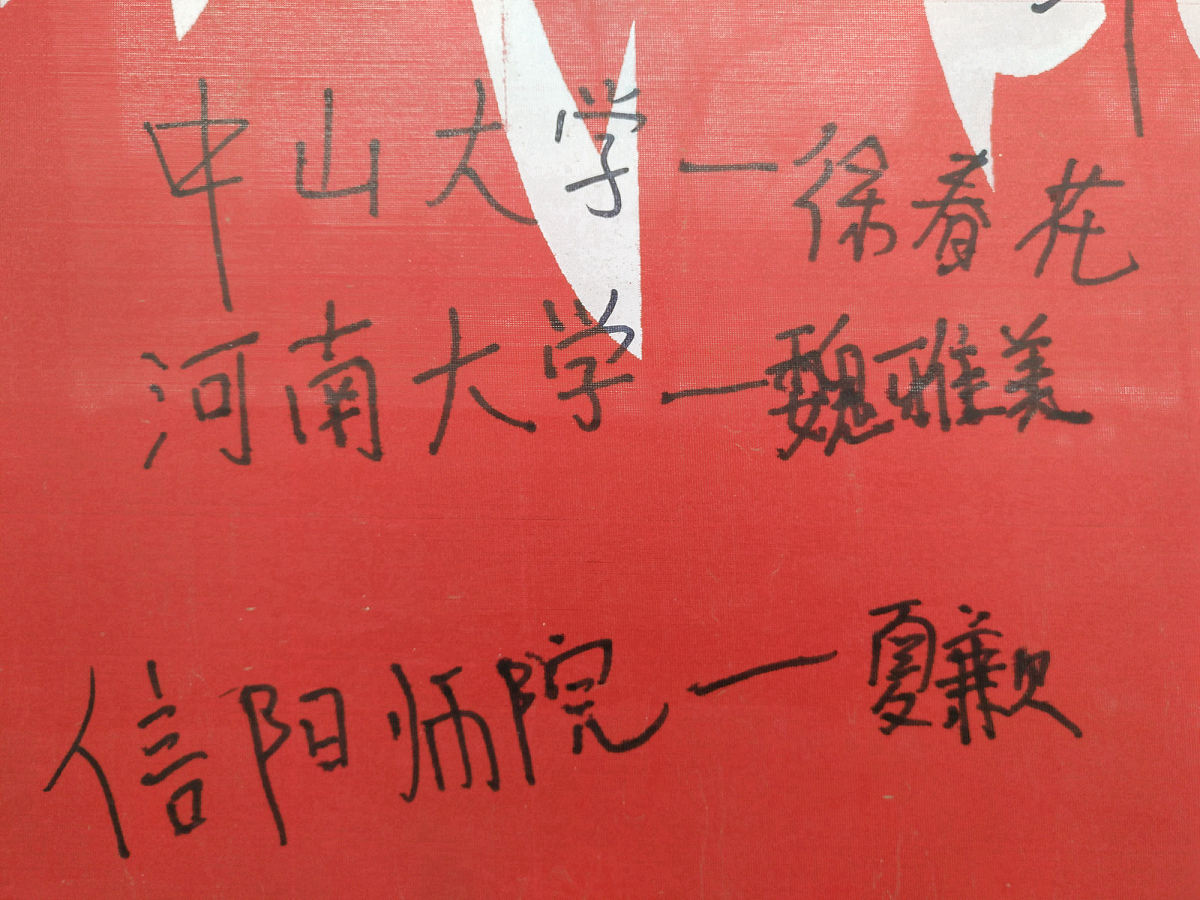 中山大学—徐春花
河南大学—魏雅美
信阳师院—夏